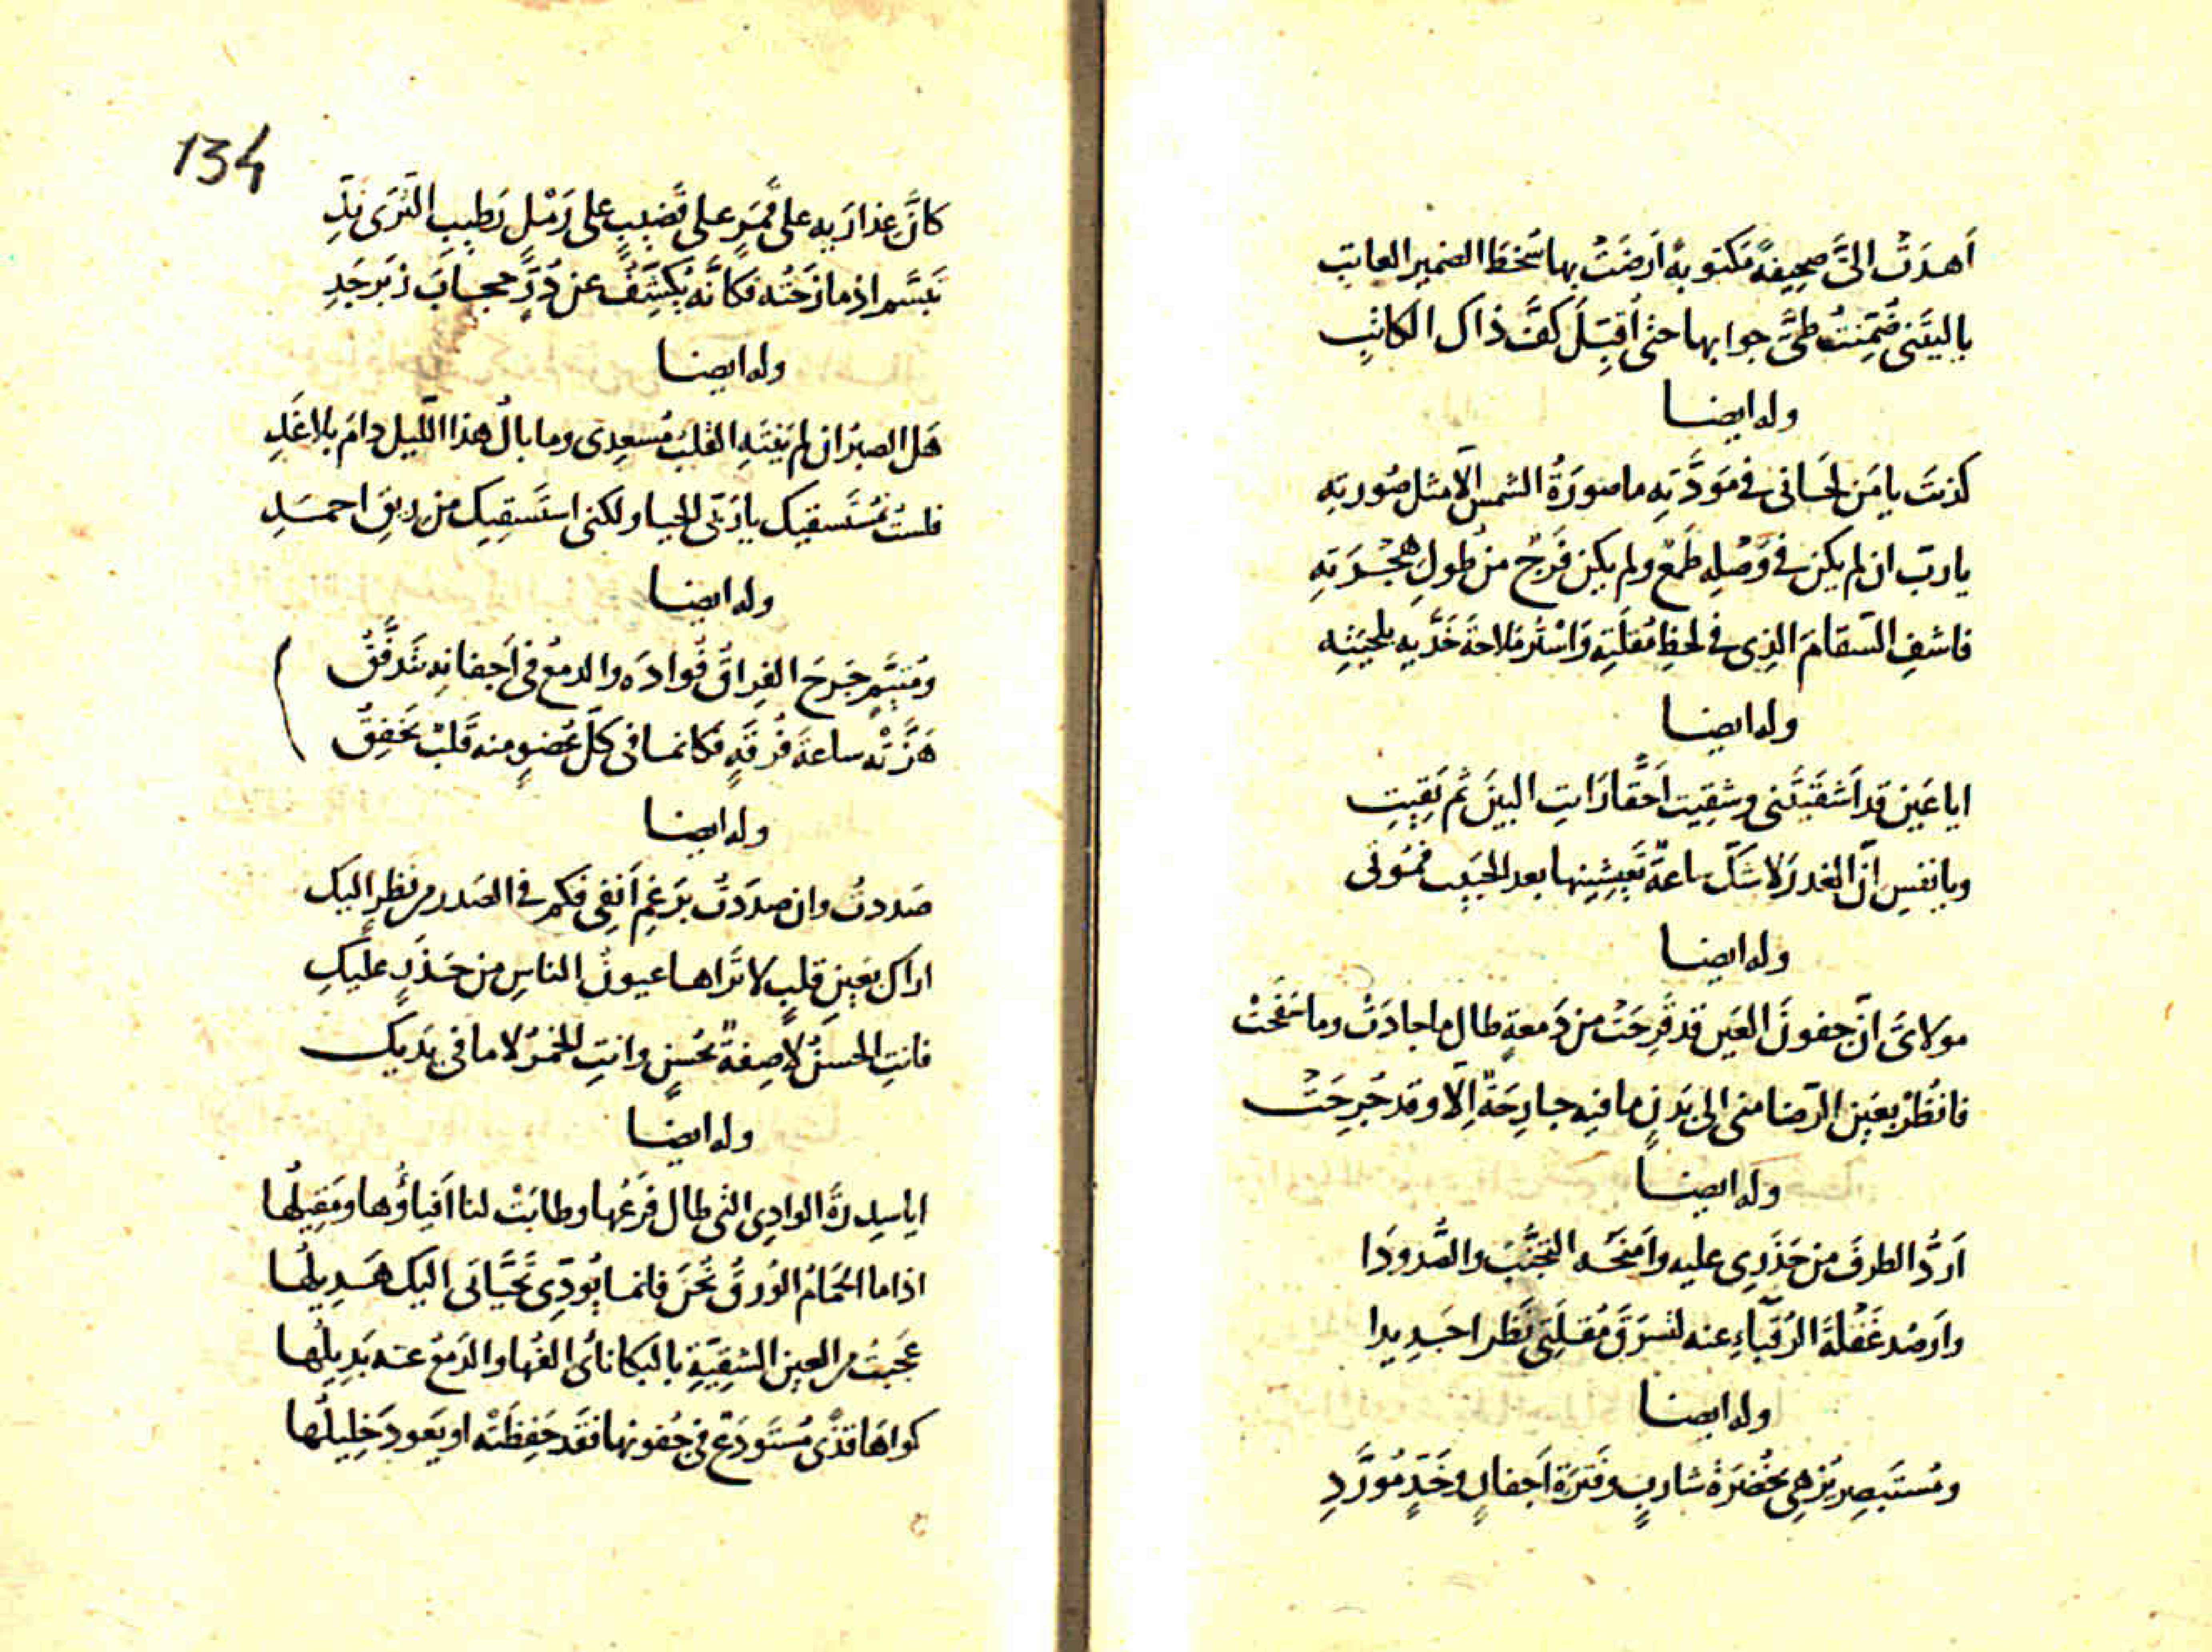 اَهدَتْ الىَّ صحيفةً مَكتوبةً اَرضَتْ بها سَخطَ الضمير العاتب
ياليتَنى ضُمِّنتُ طىَّ جوابها حتى اُقبِّلَ كفَّ ذاك الكاتبِ
وله ايضا
كذبتَ يا مَن لَحانى فى مَودَّتِه ما صورَةُ الشمس الّا مثل صُورتِه
يا ربّ ان لم يكن فى وَصْلِه طَمَعٌ ولم يكن فَرَجٌ من طولِ هَجْرَتِه
فاشفِ السّقامَ الذى فى لحظِ مُقلَتِه وَاسْتُر مَلاحةَ خَدَّيهِ بلحيَتِه
وله ايضا
ايا عَين قد اَشقَيتَنى وشقِيت اَحقّا رَاَيتِ البينَ ثم بَقِيتِ
ويا نفسِ انّ الغدرَ لا شكّ ساعةٌ تَعيشِينها بعد الحَبيب فموتى
وله ايضا
مولاىَ انّ جفونَ العَين قد قَرِحَتْ من دَمعةٍ طال ما جادَتْ وما سَفَحَتْ
فانظُرْ بعَين الرّضا منى الى بَدنٍ ما فيه جارِحَةٌ اِلّا وقد جُرِحَتْ
وله ايضا
اَردُّ الطرفَ من حَذَرِى عليه واَمنحُه التجنُّبَ والصُّدودَا
وارصُد غَفْلةَ الرُّقَباءِ عنه لتسرَقَ مُقلَتِى نَظَرا جَديدا
وله ايضا
ومُستَبصِر يُزهى بخُضرَة شاربٍ وفَترَة اَجفانٍ وخَدٍّ مُورَّدِ
134
كانَّ عِذارَيه على قَمَرٍ على قَضيبٍ على رَمْلٍ رَطيبِ الثَرَى نَدِ
تبَسَّم اذ مازَحْتُه فكانَّه يُكشِّفُ عن دُرٍّ حجابَ زَبَرجَدِ
وله ايضا
هَل الصبرُ ان لم يَثنِهِ القلبُ مُسعِدى وما بالُ هذا اللّيل دامَ بلا غَدِ
فلستُ بمُستَسقيك يا رَبّى الحيا ولكنى استَسقِيك من ريقِ احمَدِ
وله ايضا
ومُتيَّمٍ جَرحَ الفِراقُ فُوادَه والدمعُ فى اَجفانِه يَتَدفّقُ
هَزَّتْه ساعةَ فُرقَةٍ فكانما فى كلّ عُضوٍ منه قَلبٌ يَخفِقُ
وله ايضا
صَددتُ وان صدَدَتُ بَرغمِ اَنفِى فكم فى الصّدر من نظرٍ اليك
اراكِ بعَينِ قلبٍ لا تَراها عيونُ الناسِ من حَذَرٍ عليكِ
فانتِ الحسنُ لا صِفةٌ بحُسنٍ وانتِ الخمرُ لا ما فى يَديك
وله ايضا
ايا سِدرةَ الوادِى التى طال فَرعُها وطابَتْ لنا اَفياؤُها ومَقِيلُها
اذا ما الحَمَامُ الوُرقُ نُحنَ فانما يُودّى تَحيَّاتى اليك هَديلُها
عَجبتُ من العين الشقيّةِ بالبكا ناىُ الفُها والدَمعُ عنه بَدِيلُها
كواها قذًى مُستَودَعٌ فى جُفونها فقَد حَفِظَتْه او يَعودَ خَليلُها